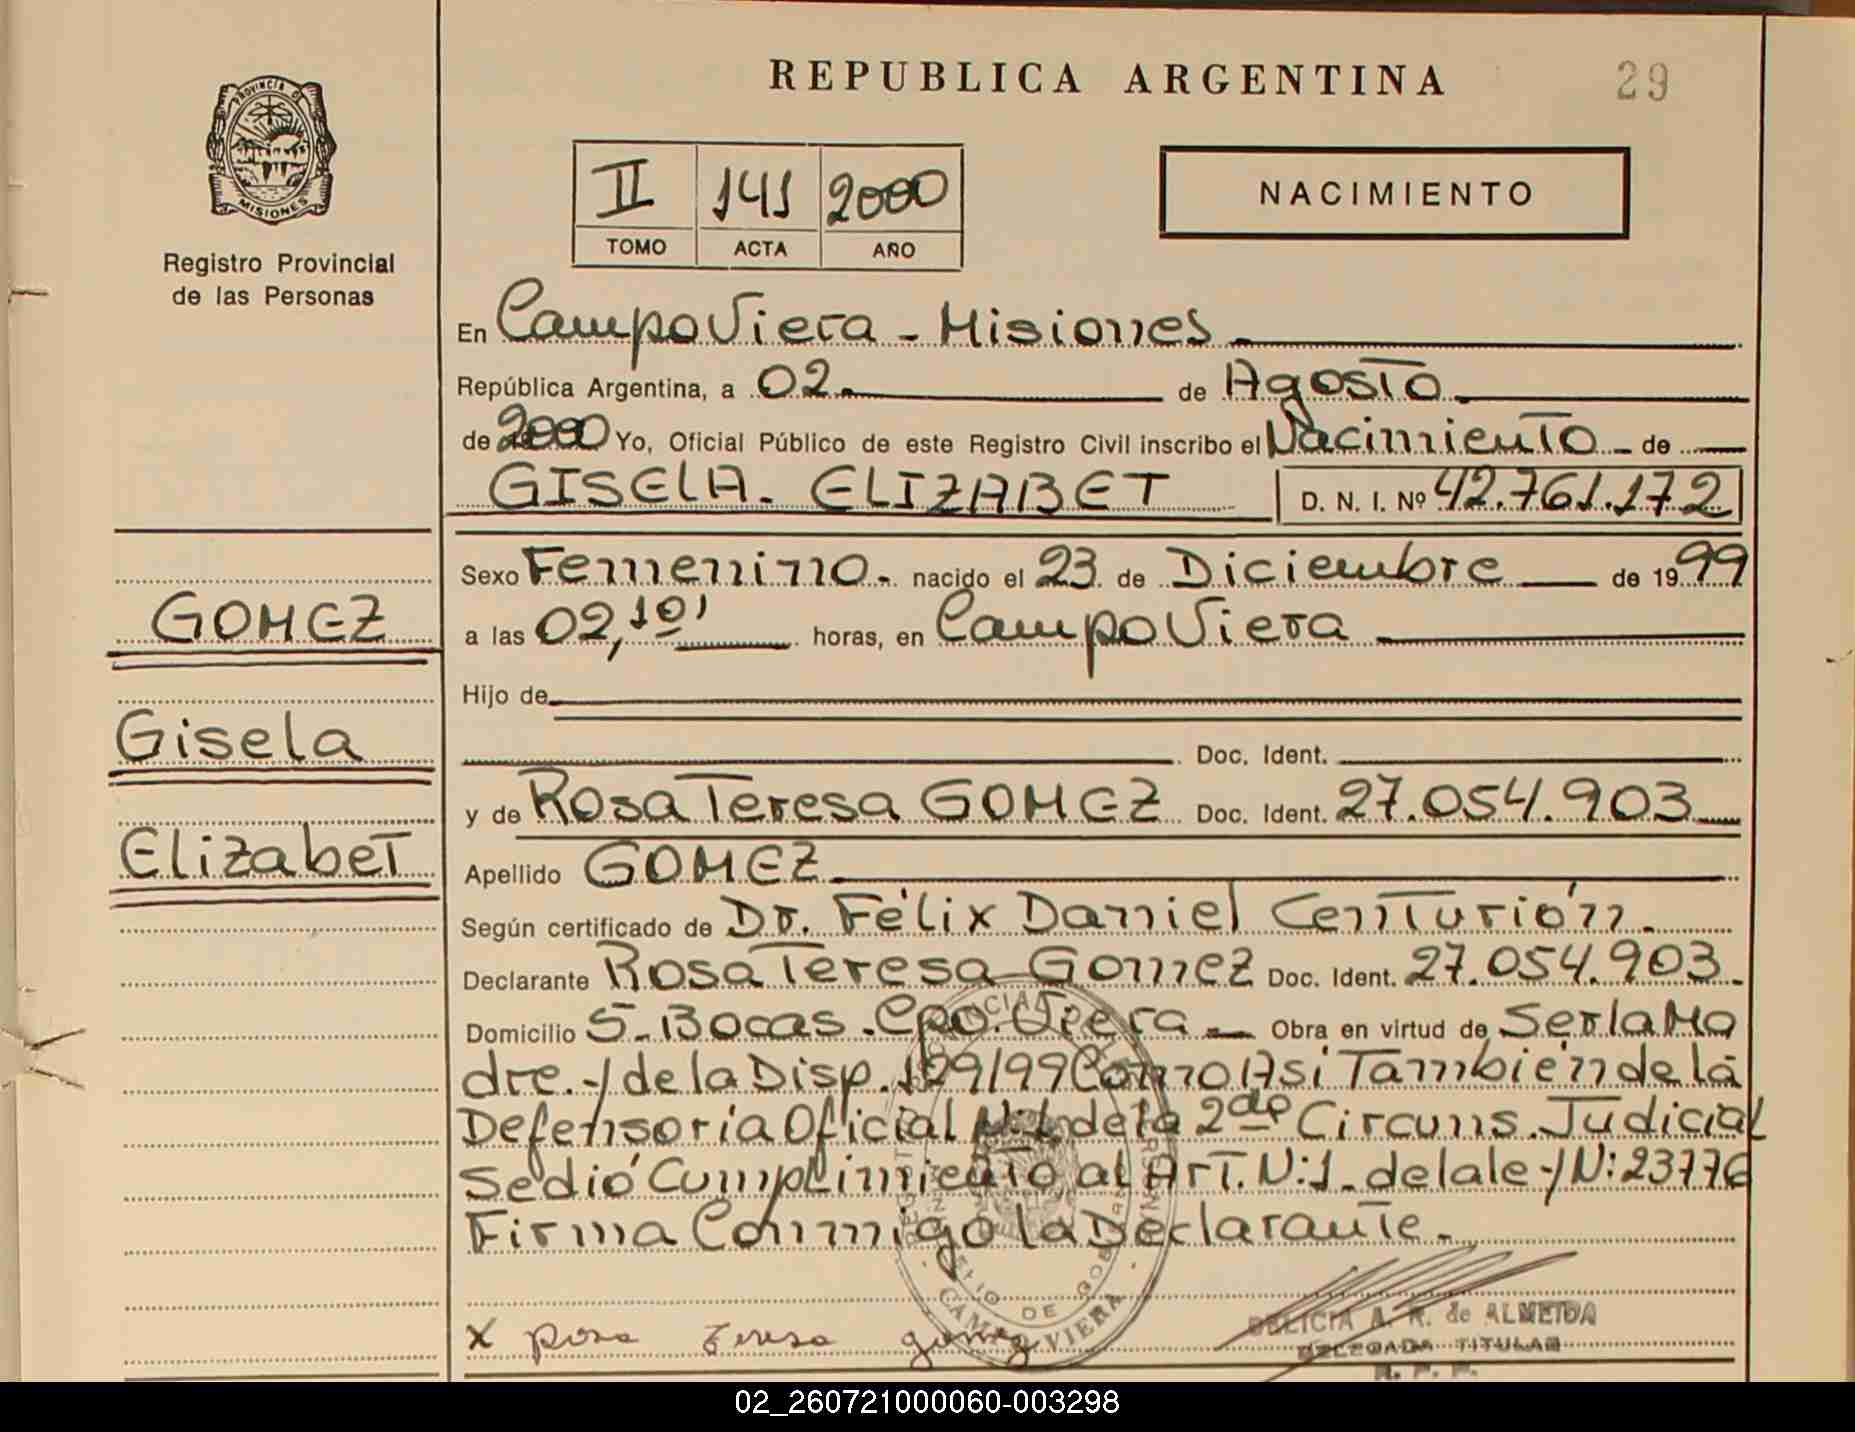 REPUBLICA ARGENTINA
29
PROVINCIA DE
MISIONES
Registro Provincial
de las Personas
II 141 2000
TOMO ACTA AÑO
NACIMIENTO
En Campo Viera - Misiones
República Argentina, a 02 de Agosto
de 2000 Yo, Oficial Público de este Registro Civil inscribo el Nacimiento de
GISELA - ELIZABET D. N. I. Nº 42.761.172
Sexo Femenino. nacido el 23 de Diciembre de 1999
a las 02,10' horas, en Campo Viera
Hijo de
Doc. Ident.
y de Rosa Teresa GOMEZ Doc. Ident. 27.054.903
Apellido GOMEZ
Según certificado de Dr. Félix Daniel Centurión.
Declarante Rosa Teresa Gomez Doc. Ident. 27.054.903
Domicilio 5-Bocas.-Cpo. Viera Obra en virtud de Ser la Ma
dre.-/ de la Disp. 129/99 Como Asi También de la
Defensoría Oficial N:1. de la 2da Circuns. Judicial
Se dió Cumplimiento al Art. N:1- de la le-/ N: 23776
Firma Conmigo la Declarante.
GOMEZ
Gisela
Elizabet
X Rosa Teresa gomez
CAMPO VIERA
DELICIA A. R. de ALMEIDA
DELEGADA TITULAR
R. P. P.
02_260721000060-003298